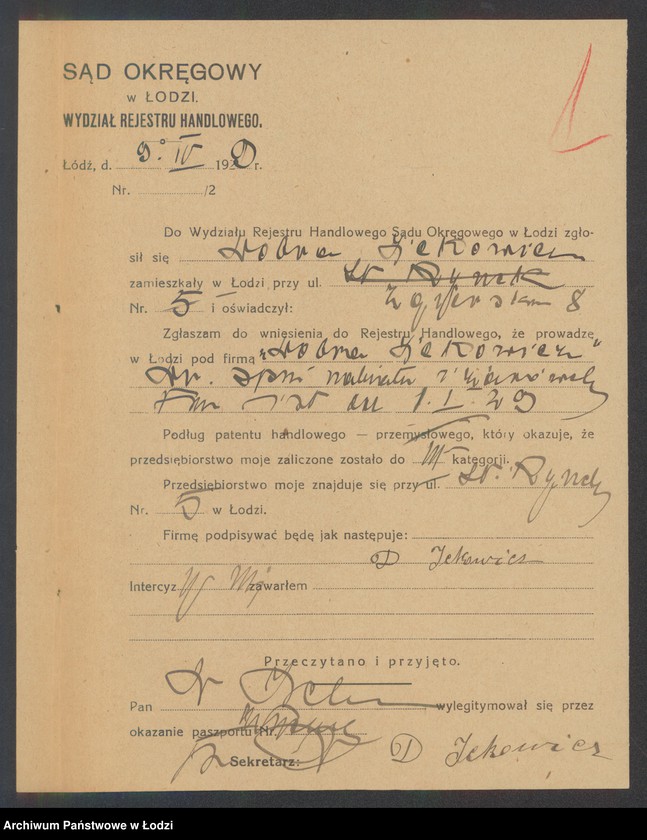 SĄD OKRĘGOWY
w ŁODZI.
WYDZIAŁ REJESTRU HANDLOWEGO.
Łódź, d. 9. IV 1929 r.
Nr. /2
Do Wydziału Rejestru Handlowego Sądu Okręgowego w Łodzi zgło-
sił się Dobra Jckowicz
zamieszkały w Łodzi przy ul. St. Rynek
Nr. 5 i oświadczył: Zgierska 8
Zgłaszam do wniesienia do Rejestru Handlowego, że prowadzę
w Łodzi pod firmą „Dobra Jckowicz"
1. I. 29
Podług patentu handlowego — przemysłowego, który okazuje, że
przedsiębiorstwo moje zaliczone zostało do III kategorji.
Przedsiębiorstwo moje znajduje się przy ul. St. Rynek
Nr. 5 w Łodzi.
Firmę podpisywać będę jak następuje:
D Jckowicz
Intercyzy zawarłem
Przeczytano i przyjęto.
Pan wylegitymował się przez
okazanie paszportu Nr.
Sekretarz: D Jckowicz
Archiwum Państwowe w Łodzi